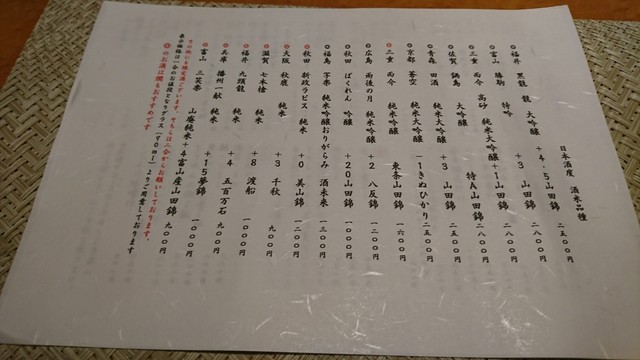 日本酒度 酒米品種
福井 黒龍 龍 大吟醸 +4.5 山田錦 二五〇〇円
富山 勝駒 特吟 +3 山田錦 二八〇〇円
三重 而今 高砂 純米大吟醸 +1 山田錦 二八〇〇円
佐賀 鍋島 大吟醸 特A山田錦 二八〇〇円
青森 田酒 純米大吟醸 +3 山田錦 二五〇〇円
京都 蒼空 純米大吟醸 -1 きぬひかり 二五〇〇円
三重 而今 純米吟醸 東条山田錦 一六〇〇円
広島 雨後の月 純米吟醸 +2 八反錦 一二〇〇円
秋田 ばくれん 吟醸 +20 山田錦 一〇〇〇円
福島 写楽 純米吟醸おりがらみ 酒未来 一三〇〇円
秋田 新政ラピス 純米 +0 美山錦 一二〇〇円
大阪 秋鹿 純米 +3 千秋 九〇〇円
滋賀 七本槍 純米 +8 渡船 一〇〇〇円
福井 九頭龍 純米
兵庫 播州一献 純米 +4 五百万石 九〇〇円
富山 三笑楽 純米 +15 夢錦 一〇〇〇円
山廃純米 +4 富山産山田錦 九〇〇円
その他にも限定酒ございます。そちらは二合からお願いしております。
表示価格は一合のお値段となりグラス(90ml)よりご用意しております
のお酒は燗もおすすめです